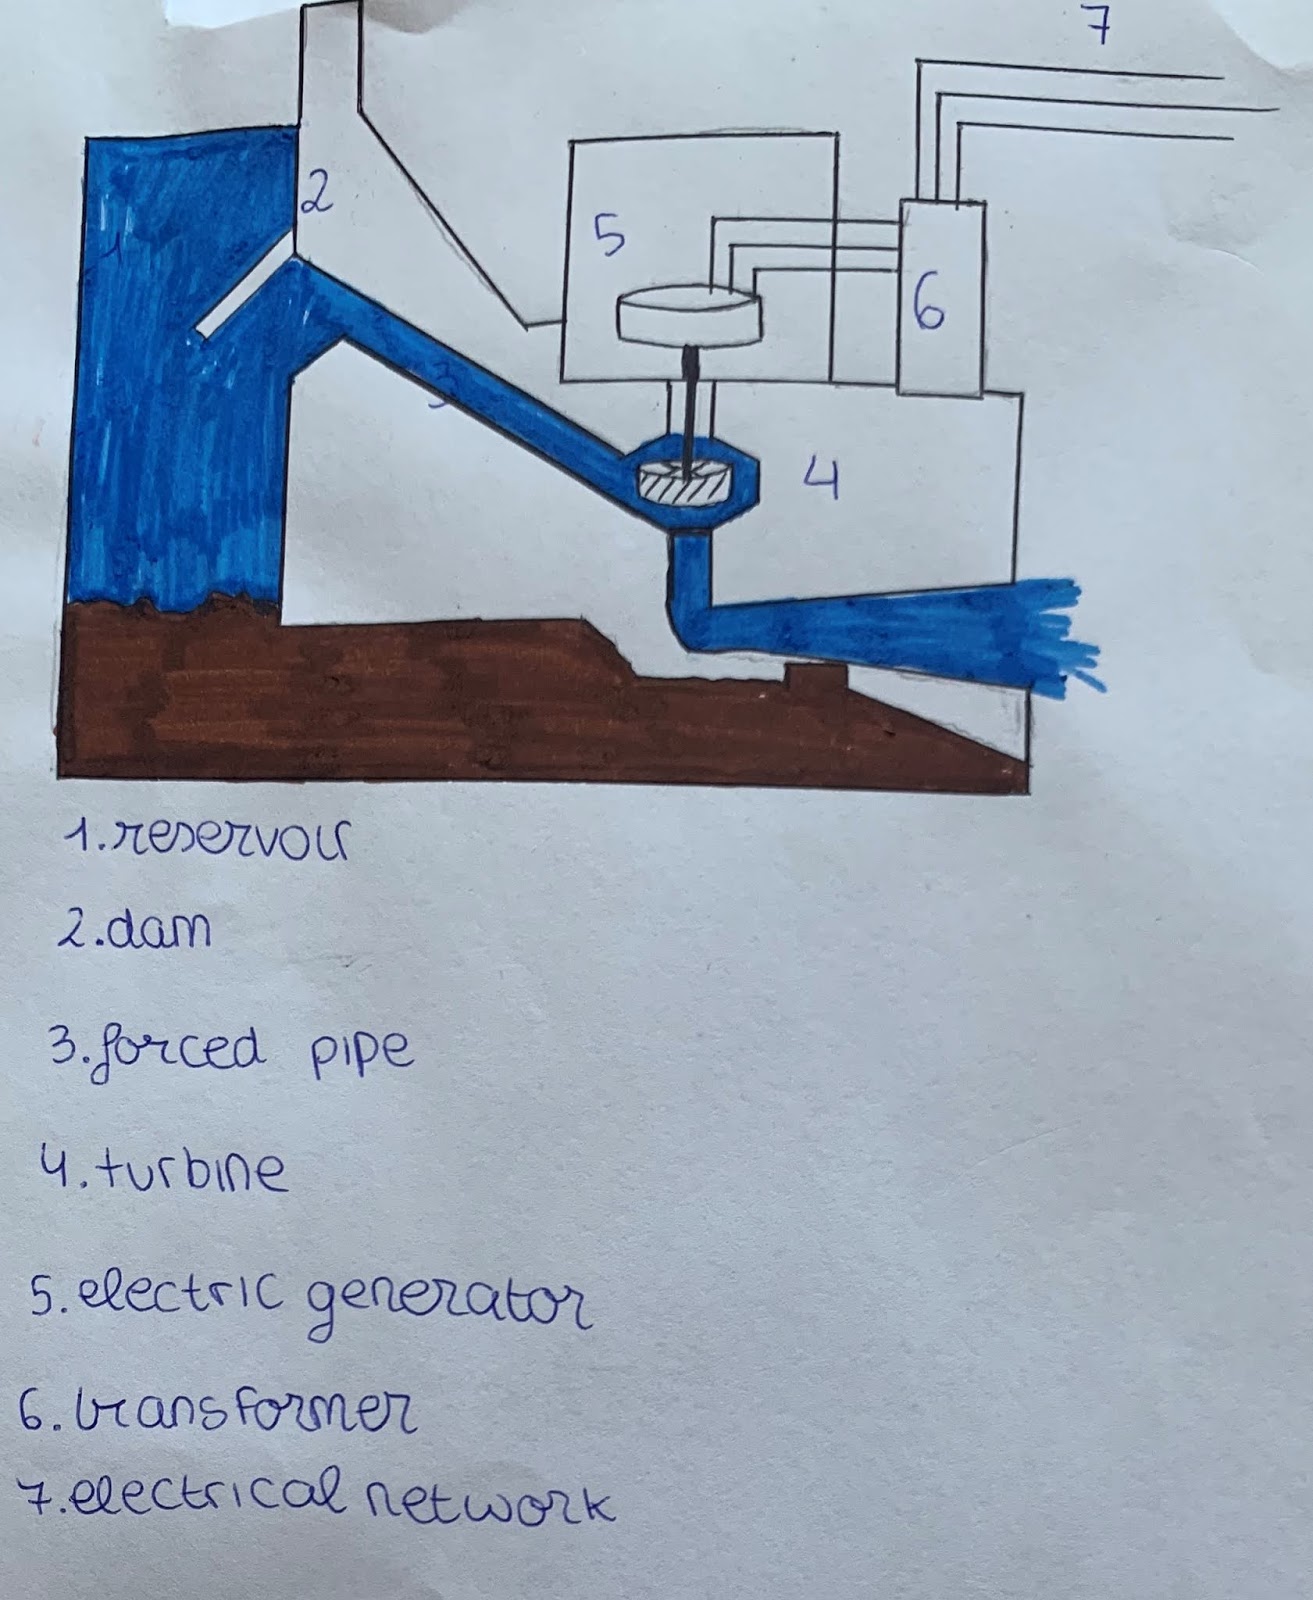 7
2
1
5
6
3
4
1.reservoir
2.dam
3.forced pipe
4.turbine
5.electric generator
6.transformer
7.electrical network